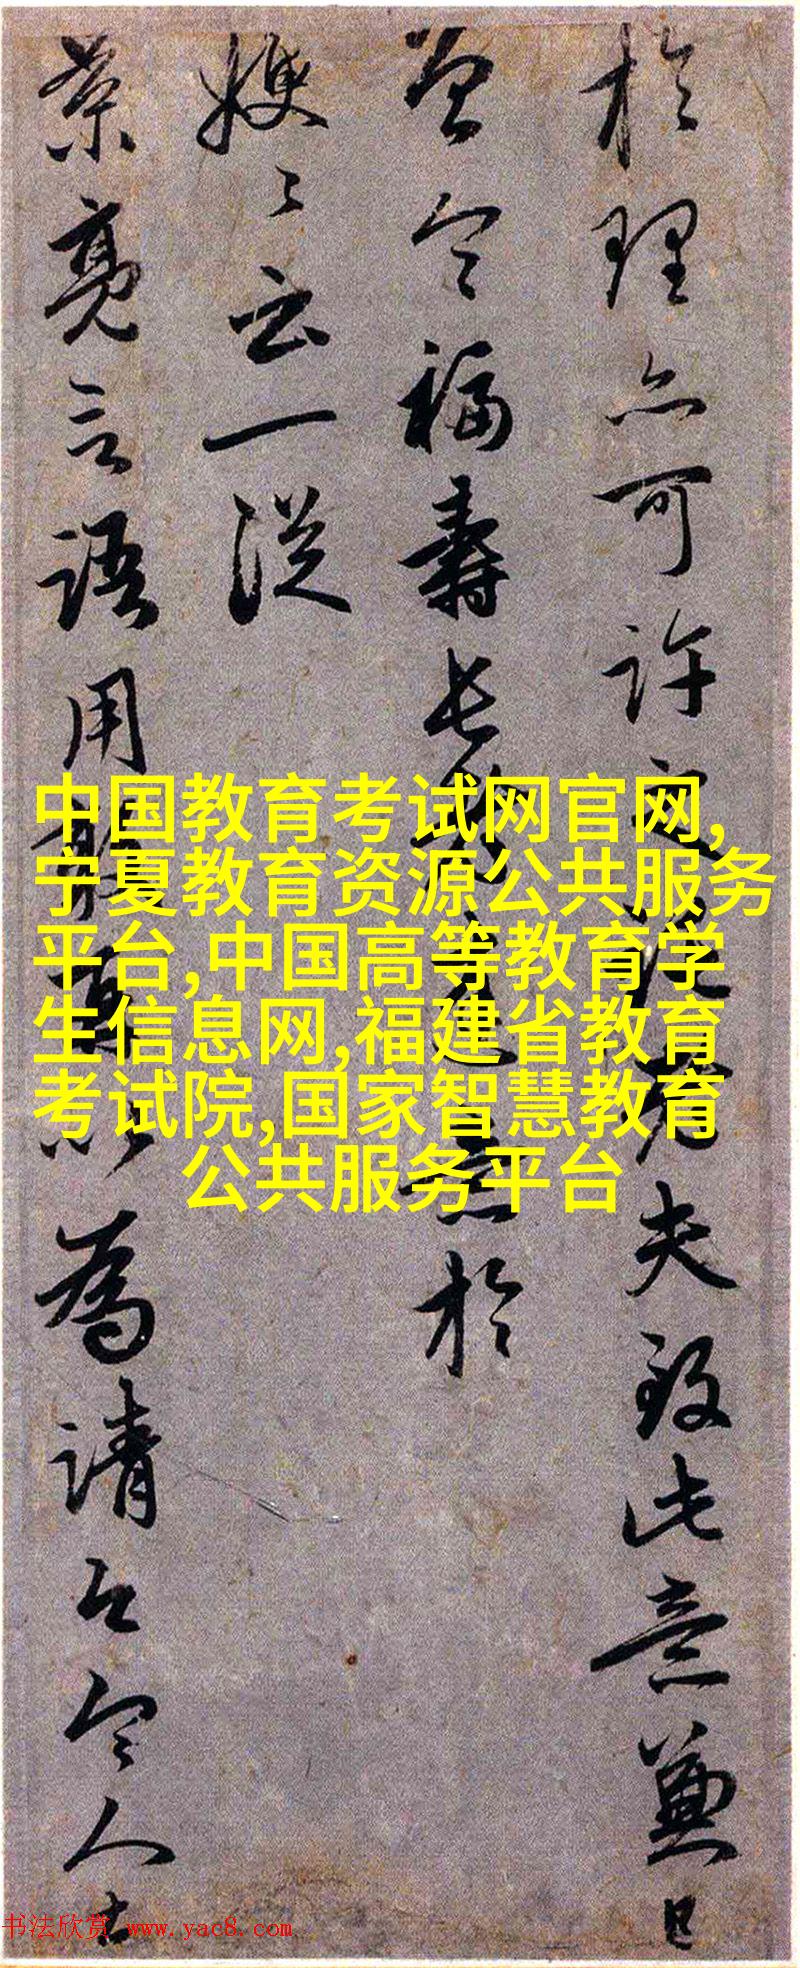 於理亦可許之從
夫致此意兼
曾令福壽長
意於
嫂〻云一従
景亮言語用
以為請只令人
中国教育考试网官网,
宁夏教育资源公共服务
平台,中国高等教育学
生信息网,福建省教育
考试院,国家智慧教育
公共服务平台
书法欣赏 www.yac8.com